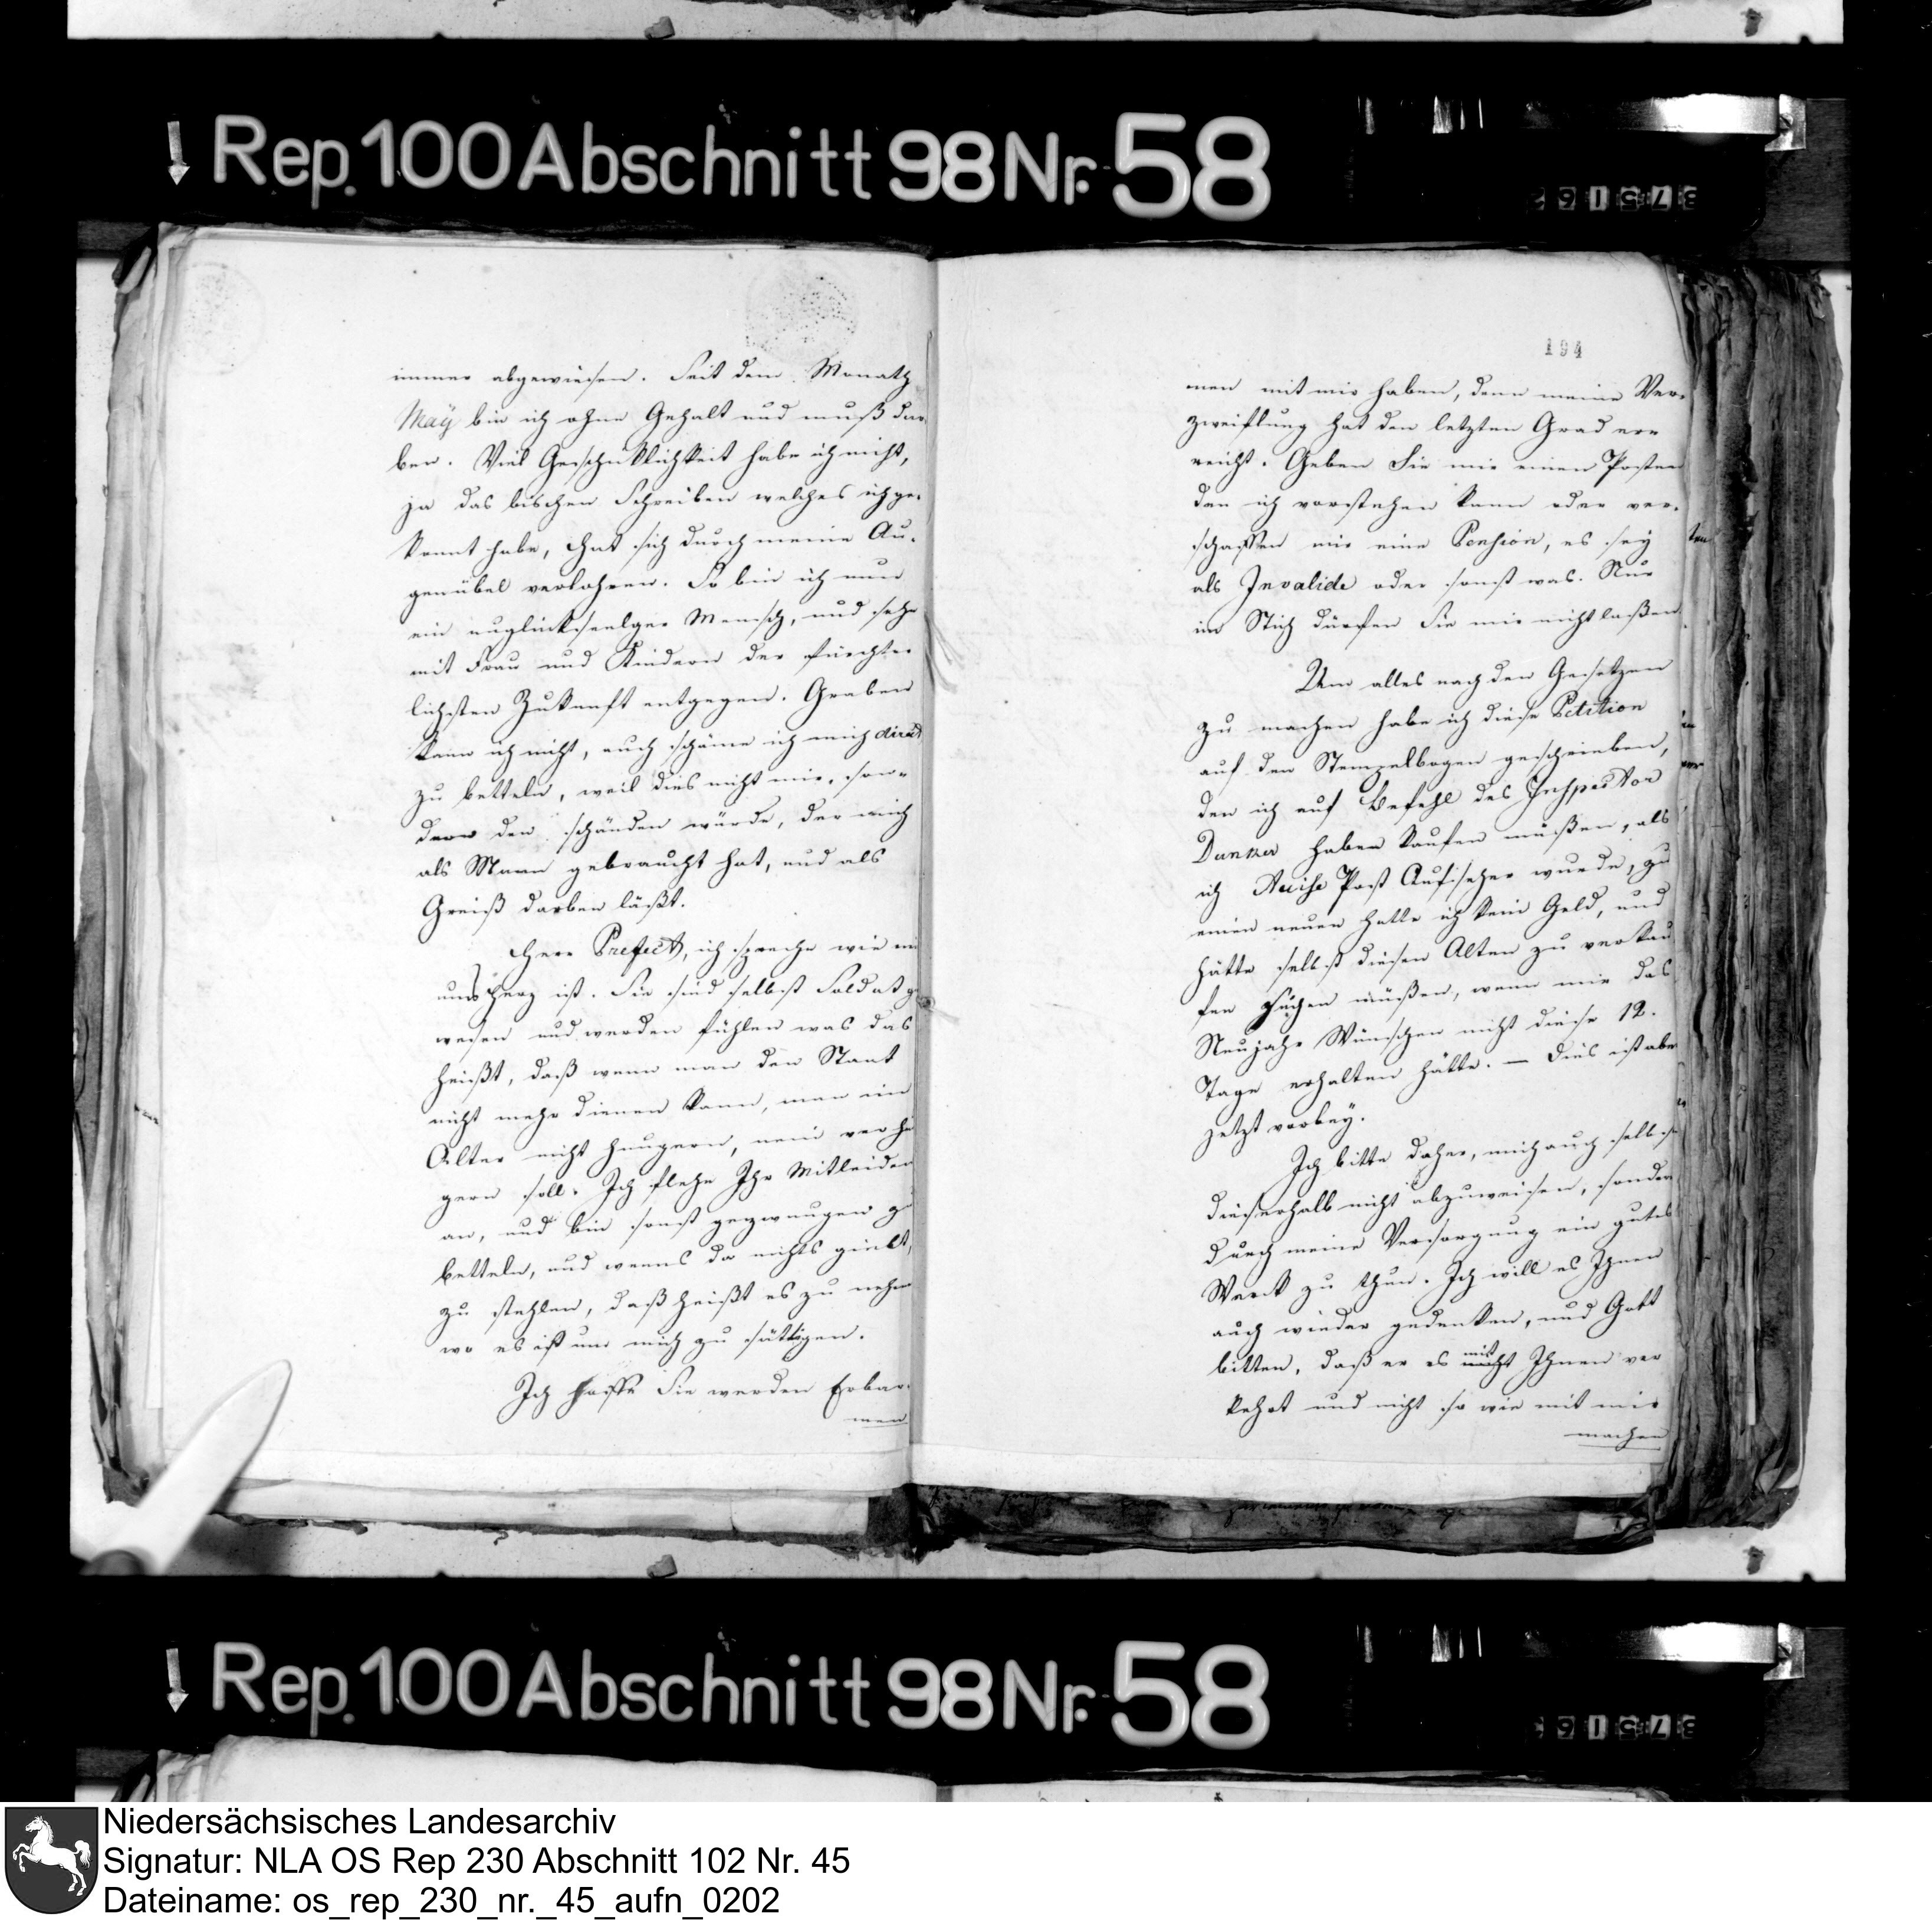 Rep. 100 Abschnitt 98 Nr. 58
immer abgewiesen. Seit dem Monath
Maÿ bin ich ohne Gehalt und muß dar-
ben. Viel Geschicklichkeit habe ich nicht,
ja das bischen Schreiben welches ich ge-
konnt habe, hat sich durch meine Au-
genübel verlohren. So bin ich nun
ein unglückseelger Mensch, und sehe
mit Frau und Kindern der fürchter
lichsten Zukunft entgegen. Graben
kann ich nicht, auch schäme ich mich direct
zu betteln, weil dies nicht mir, son-
dern den schänden würde, der mich
als Mann gebraucht hat, und als
Greiß darben läßt.
Herr Prefect, ich spreche wie mir
ums Herz ist. Sie sind selbst Soldat ge
wesen und werden fühlen was das
heißt, daß wenn man den Staat
nicht mehr dienen kann, man im
Alter nicht hungern, nein verhun
gern soll. Ich flehe Ihr Mitleiden
an, und bin sonst gezwungen zu
betteln, und wenns da nichts giebt,
zu stehlen, daß heißt es zu nehmen
wo es ist um mich zu sättigen.
Ich hoffe Sie werden Erbar-
men
194
men mit mir haben, denn meine Ver-
zweiflung hat den letzten Grad er-
reicht. Geben Sie mir einen Posten
den ich vorstehen kann oder ver-
schaffen mir eine Pension, es sey
als Invalide oder sonst was. Nur
im Stich dürfen Sie mir nicht laßen.
Um alles nach den Gesetzen
zu machen habe ich diese Petition
auf den Stempelbogen geschrieben,
den ich auf Befehl des Inspector
Dunker haben kaufen müßen, als
ich Post Aufseher wurde, zu
einen neuen hatte ich kein Geld, und
hätte selbst diesen Alten zu verkau
fen suchen müßen, wenn mir das
Neujahr Wünschen nicht diese 12.
Tage erhalten hätte. — Dies ist aber
jetzt vorbeÿ.
Ich bitte daher, mich auch selbst
dieserhalb nicht abzuweisen, sondern
durch meine Versorgung ein gutes
Werck zu thun. Ich will es Ihnen
auch wieder gedenken, und Gott
bitten, daß er es mit Ihnen ver
kehrt und nicht so wie mit mir
machen
Rep. 100 Abschnitt 98 Nr. 58
Niedersächsisches Landesarchiv
Signatur: NLA OS Rep 230 Abschnitt 102 Nr. 45
Dateiname: os_rep_230_nr._45_aufn_0202